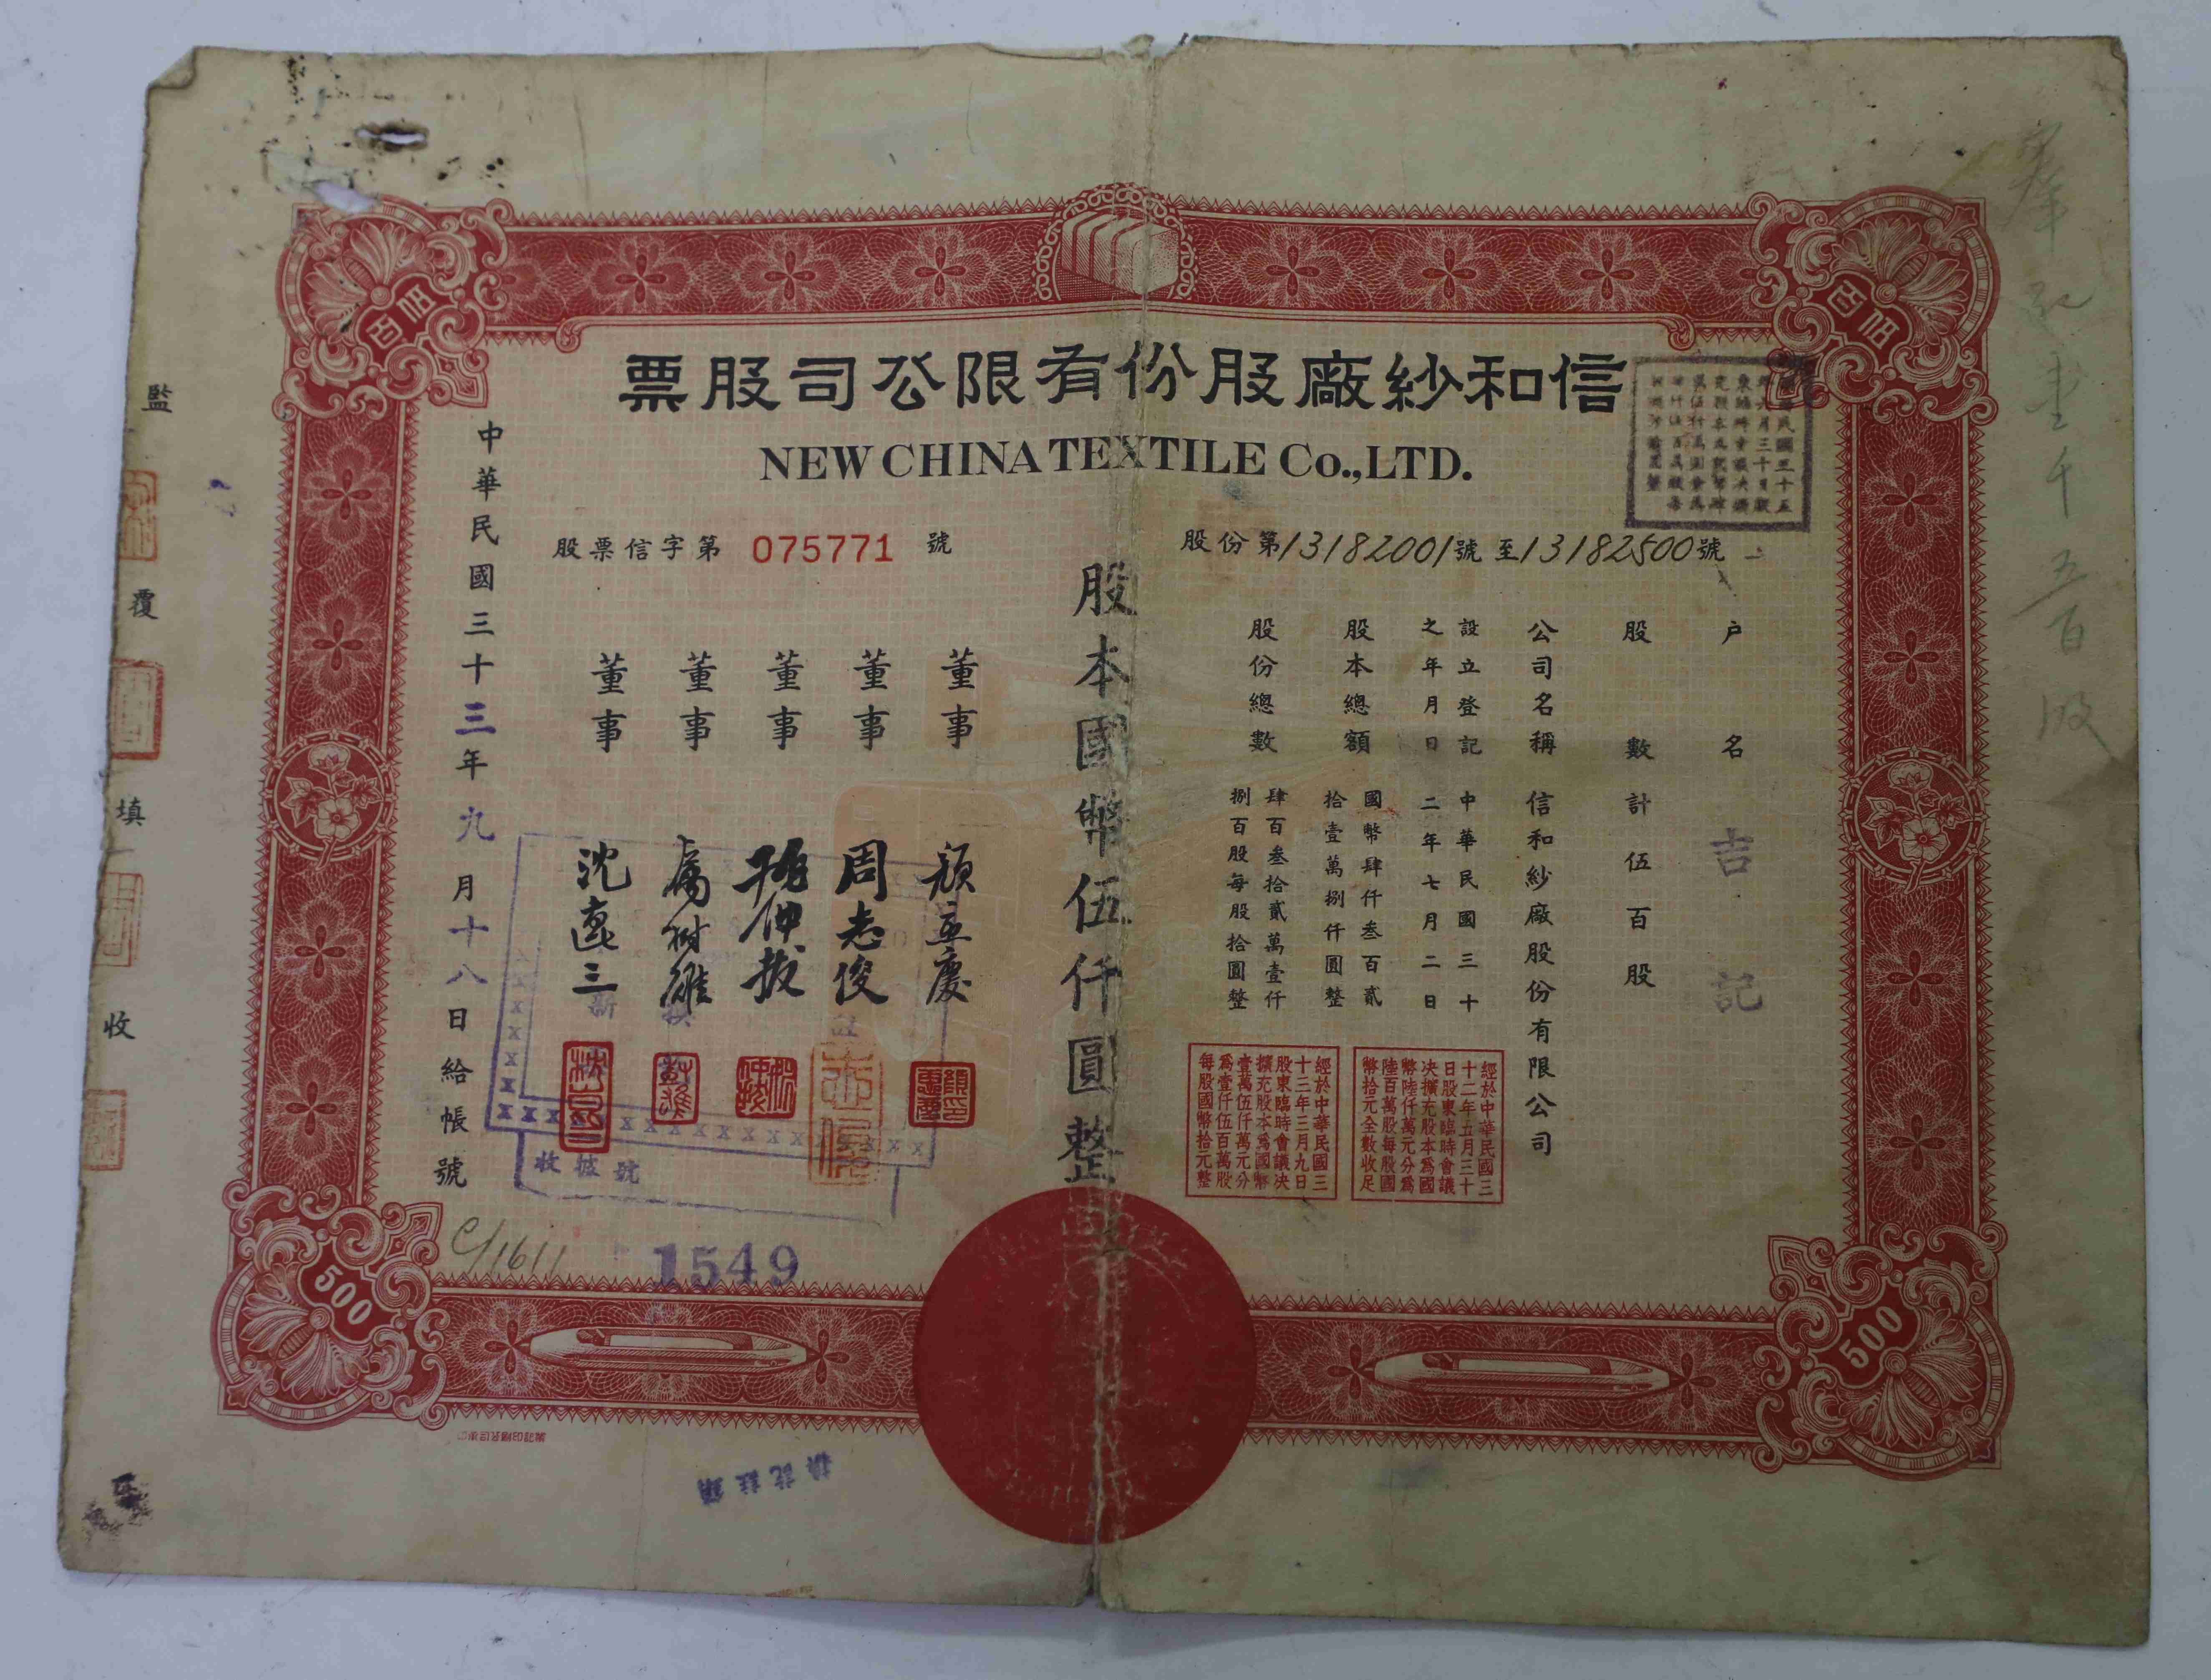 信和紗廠股份有限公司股票
NEW CHINA TEXTILE Co.,LTD.
股份第13182001號至13182500號
股票信字第 075771 號
戶名 吉記
股數計伍百股
公司名稱 信和紗廠股份有限公司
設立登記 中華民國三十
之年月日 二年七月二日
股本總額 國幣肆仟叁百貳
拾壹萬捌仟圓整
股份總數 肆百叁拾貳萬壹仟
捌百股每股拾圓整
經於中華民國三
十二年五月三十
日股東臨時會議
決擴充股本爲國
幣陸仟萬元分爲
陸百萬股每股國
幣拾元全數收足
經於中華民國三
十三年三月九日
股東臨時會議決
擴充股本爲國幣
壹萬伍仟萬元分
爲壹仟伍百萬股
每股國幣拾元整
股本國幣伍仟圓整
董事 顏立慶
董事 周志俊
董事
董事
董事 沈邁三
中華民國三十三年九月十八日給帳號
收據號
C/1611
1549
監
覆
填
收
伍百
伍百
500
500
壹千五百股